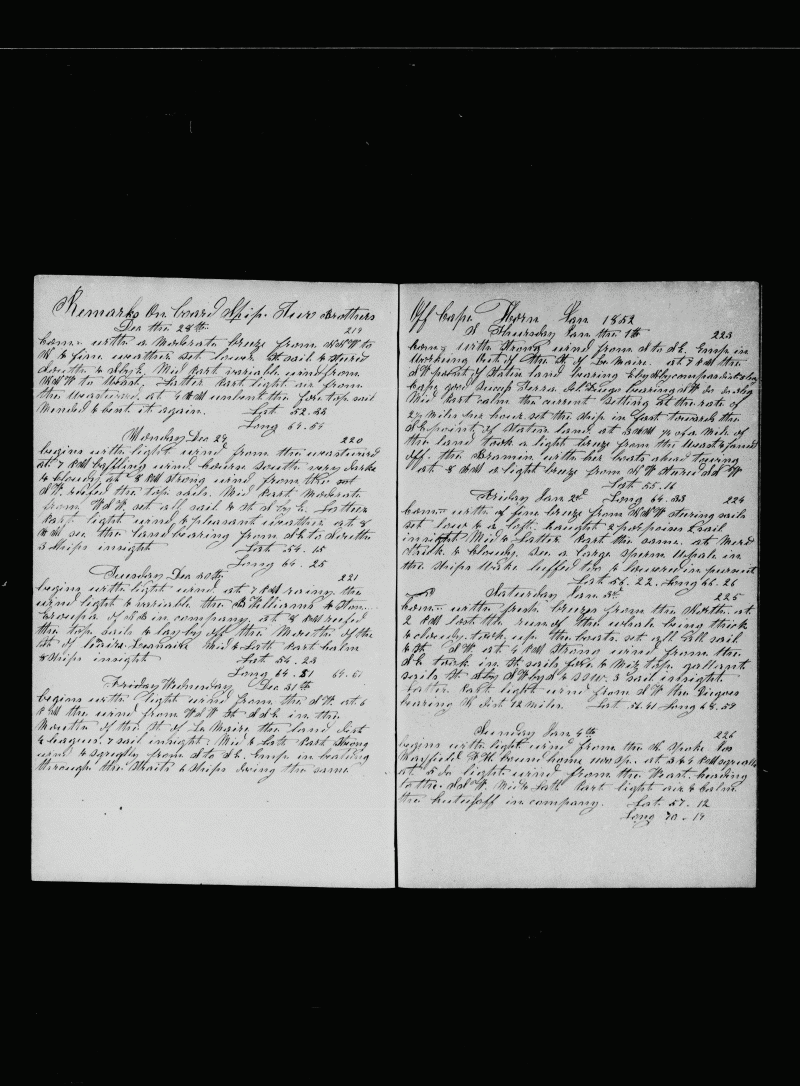 Remarks On board Ship Four Brothers
Dec the 28th 219
Com with a Moderate breeze from NNW to
W & fine weather set lower St sail & steerd
South & SbyE. Mid Part variable wind from
WNW to West. Latter Part light air from
the Westward. at 4 AM unbent the fore top sail
Mended & bent it again. Lat 52.22
Long 64.54
Monday Dec 29 220
begins with light wind from the westward
at 7 PM baffling wind course South very dark
& cloudy at 8 PM strong wind from the
SW. reefed the top sails. Mid Part Moderate
from WSW set all sail & St S by E. Latter
Part light wind & pleasant weather at 8
AM see the land bearing from SE to South
3 Ships insight Lat 54.15
Long 64.25
Tuesday Dec 30th 221
begins with light wind. at 7 PM rainy the
wind light & variable the &
of in company. at 8 PM reefed
the top sails & lay by off the Mouth of the
St of Mid & Latt Part calm
8 Ships insight Lat 54.23
Long 64.51 64.51
Friday Wednesday Dec 31th
begins with light wind from the SW. at 6
PM the wind from WSW St SSE in the
Mouth of the St of Le Maire the land dist
2 leagues. 7 sail insight. Mid & Latt Part Strong
wind & Squally from S to SE. Emp in beating
through the Straits 6 Ships doing the same
Off Cape Horn Jan 1852
Thursday Jan the 1th 223
Com with Strong wind from S to SE. Emp in
Working Out of the St of Le Maire. at 7 PM the
SW point of Staten land bearing by compass
Cape good Sucsess Terra Del Fuego bearing
Mid Part calm the current setting at the rate of
2½ Miles per hour. set the ship in fast towards the
SE point of Staten land. at 3 AM ½ of a Mile of
the land took a light breeze from the West &
off. the Bramin with her boats ahead towing
at 8 AM a light breeze from NW Steerd SSW
Lat 55.16
Friday Jan 2d Long 64.33 224
Com with a fine breeze from NNW stering sails
set low & a loft. Caught 2 porpoises 2 sail
insight Mid & Latter Part the same. at Merd
thick & cloudy. See a large Sperm Whale in
the Ships Wake luffed too & lowered in pursuit
Lat 56.22. Long 66.26
Saturday Jan 3d 225
Com with fresh breeze from the North. at
2 PM lost the run of the whale being thick
& cloudy. took up the boats set all sail
& St SW. at 4 PM Strong wind from the
SE took in St sails fore & Miz top gallant
sails St SSW. 3 sail insight.
Latter Part light wind from SW the Diegoes
bearing N dist 12 miles. Lat 56.41 Long 68.59
Sunday Jan 4th 226
begins with light wind from the N Spoke
Mayfield bound home at 3 & 4 PM squalls
at 5 do light wind from the West. heading
to the SSW. Mid & Latt Part light air & calm.
the in company. Lat 57.12
Long 70.19